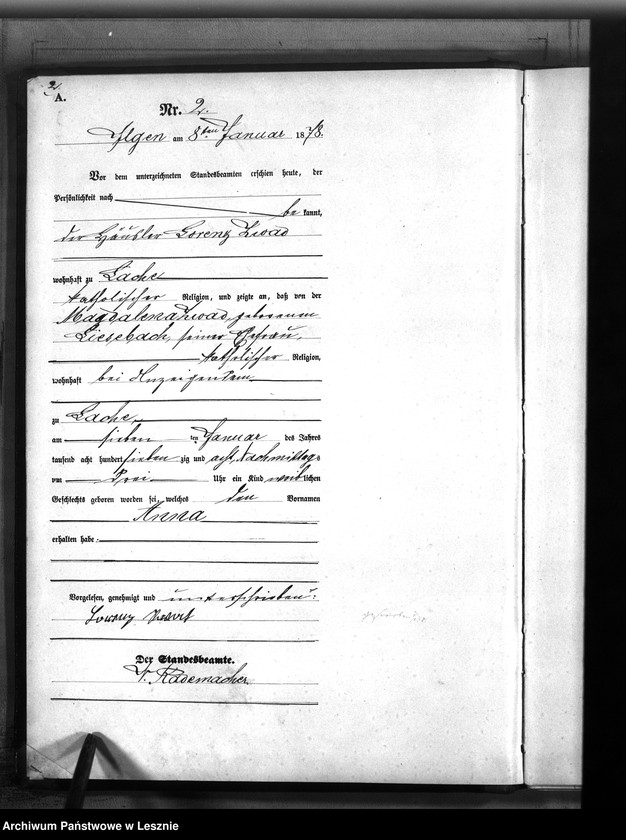 2.
A.
Nr. 2.
Ilgen am 8ten Januar 1878.
Vor dem unterzeichneten Standesbeamten erschien heute, der
Persönlichkeit nach
be kannt,
der Häusler Lorenz
wohnhaft zu Lache
katholischer Religion, und zeigte an, daß von der
Magdalena geborenen
seiner Ehefrau,
katholischer Religion,
wohnhaft bei Anzeigendem
zu Lache
am sieben ten Januar des Jahres
tausend acht hundert sieben zig und acht Nachmittags
um Drei Uhr ein Kind weib lichen
Geschlechts geboren worden sei, welches den Vornamen
Anna
erhalten habe.
Vorgelesen, genehmigt und unterschrieben:
Lorenz
Der Standesbeamte.
Rademacher
Archiwum Państwowe w Lesznie